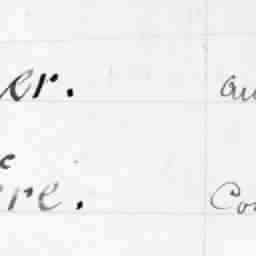 er. au
c
ere. Co